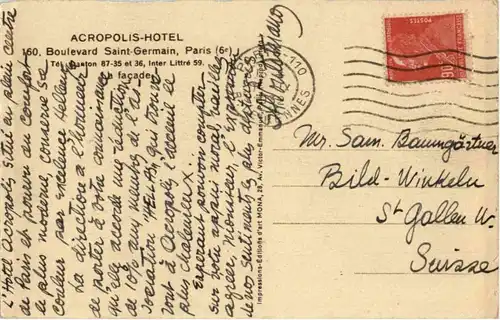 ACROPOLIS-HOTEL
160, Boulevard Saint-Germain, Paris (6e)
Tél. Danton 87-35 et 36, Inter Littré 59.
La façade
L'Hotel Acropolis situé en plein centre
de Paris et pourvu du confort
le plus moderne, conserve sa
couleur par excellence hellène.
La direction a l'honneur
de porter à votre connaissance
qu'elle accorde une réduction
de 10% aux membres de l'as-
sociation "HELLAS", qui trouve-
ront à Acropolis l'accueil le
plus chaleureux.
Espérant pouvoir compter
sur votre appui moral, veuillez
agréer, monsieur, l'expression
de nos sentiments les plus distingués
Impression-Editions d'art MONA, 28, Av. Victor-Emmanuel
Mr. Sam. Baumgärtner
Bild-Winkeln
St Gallen W.
Suisse
POSTES
90c
110
RENNES